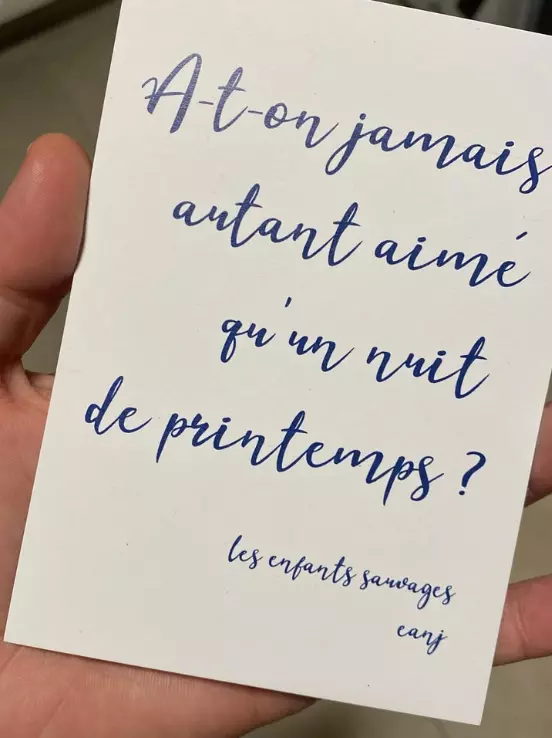 A-t-on jamais
autant aimé
qu'un nuit
de printemps ?
les enfants sauvages
canj